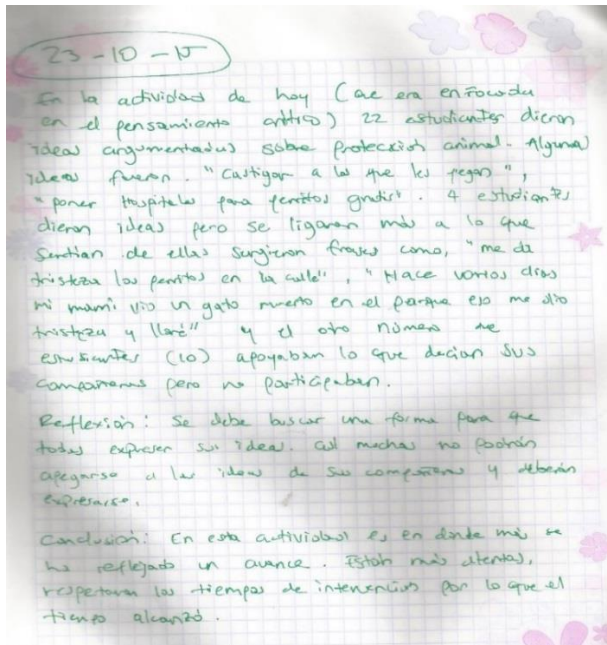 23-10-15
En la actividad de hoy (que era enfocada
en el pensamiento crítico) 22 estudiantes dieron
ideas argumentadas sobre protección animal. Algunas
ideas fueron. "castigar a los que les pegan",
"poner hospitales para perritos gratis". 4 estudiantes
dieron ideas pero se ligaron más a lo que
sentian de ellas surgieron frases como, "me da
tristeza los perritos en la calle", "Hace varios días
mi mami vio un gato muerto en el parque eso me dio
tristeza y lloré" y el otro número de
estudiantes (10) apoyaban lo que decian sus
compañeras pero no participaban.
Reflexión: Se debe buscar una forma para que
todas expresen sus ideas. muchas no podrán
apegarse a las ideas de sus compañeras y deberán
expresarse.
Conclusión: En esta actividad es en donde más se
ha reflejado un avance. Están más atentas,
respetaron los tiempos de intervención por lo que el
tiempo alcanzó.